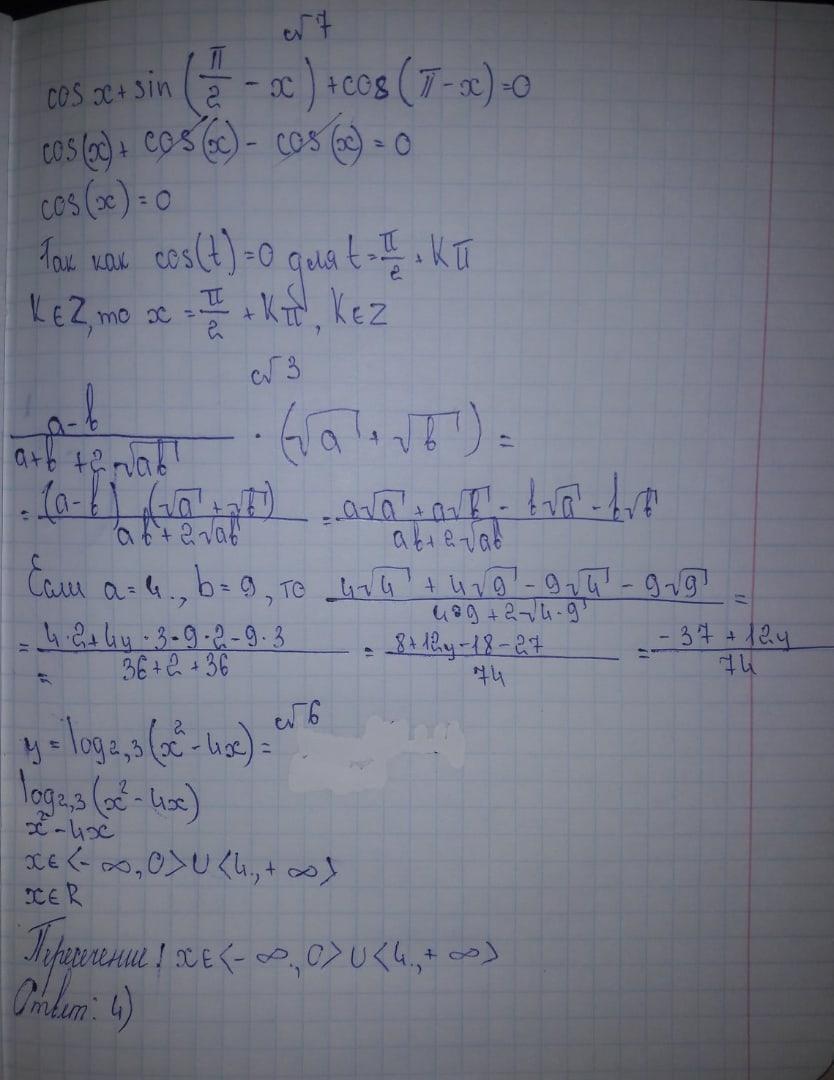 №7
cos x + sin (π/2 - x) + cos (π - x) = 0
cos(x) + cos(x) - cos(x) = 0
cos(x) = 0
Так как cos(t) = 0 для t = π/2 + Kπ
K∈Z, то x = π/2 + Kπ, K∈Z
№3
(a-b)/(a+b+2√ab) · (√a + √b) =
= (a-b) · (√a + √b)/(ab+2√ab) = (a√a + a√b - b√a - b√b)/(ab+2√ab)
Если a=4, b=9, то (4√4 + 4√9 - 9√4 - 9√9)/(4·9+2√4·9) =
= (4·2+4y·3-9·2-9·3)/(36+2+36) = (8+12y-18-27)/74 = (-37+12y)/74
=
№6
y = log2,3(x²-4x) =
log2,3(x²-4x)
x²-4x
x∈<-∞,0>∪<4,+∞>
x∈R
Пересечение! x∈<-∞,0>∪<4,+∞>
Ответ: 4)